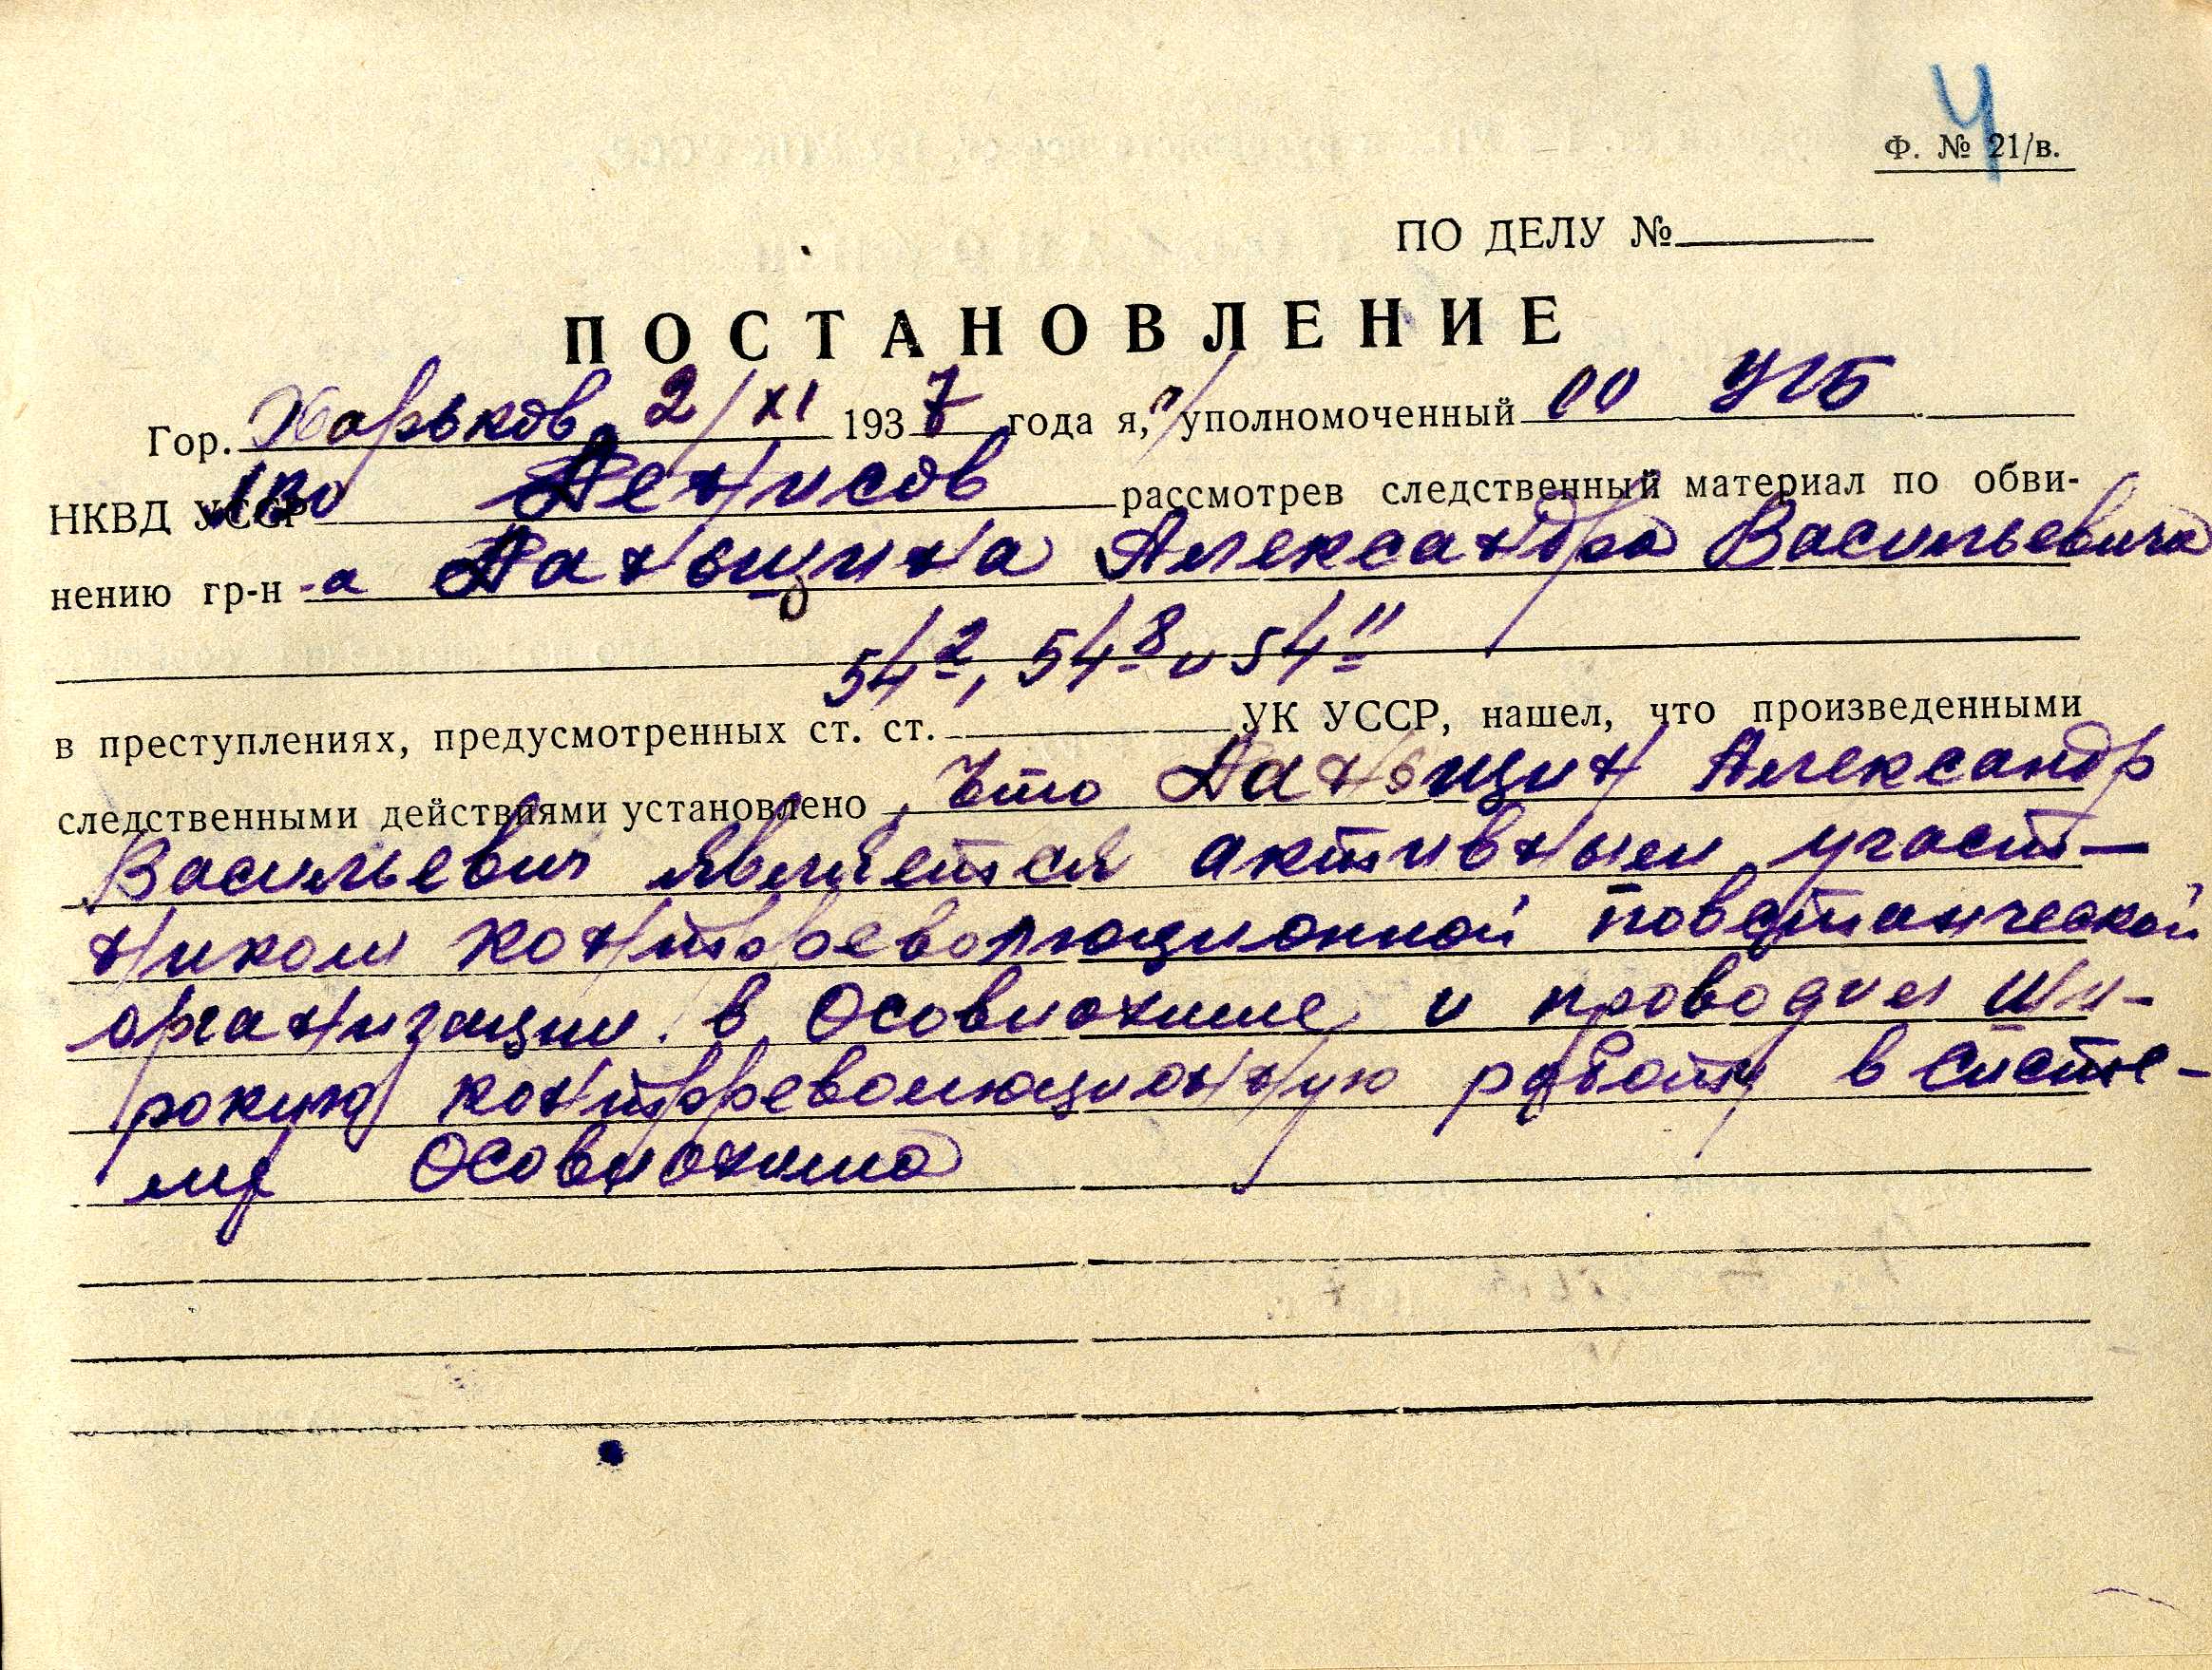 4
Ф. № 21/в.
ПО ДЕЛУ №
ПОСТАНОВЛЕНИЕ
Гор. Харьков 2/XI 1937 года я, уполномоченный ОО УГБ
НКВД УССР Денисов рассмотрев следственный материал по обви-
нению гр-н-а Даньщина Александра Васильевича
54², 54⁸ и 54¹¹
в преступлениях, предусмотренных ст. ст. УК УССР, нашел, что произведенными
следственными действиями установлено, что Даньщин Александр
Васильевич является активным участ-
ником контрреволюционной повстанческой
организации в Осовиахиме и проводил ши-
рокую контрреволюционную работу в систе-
ме Осовиахима